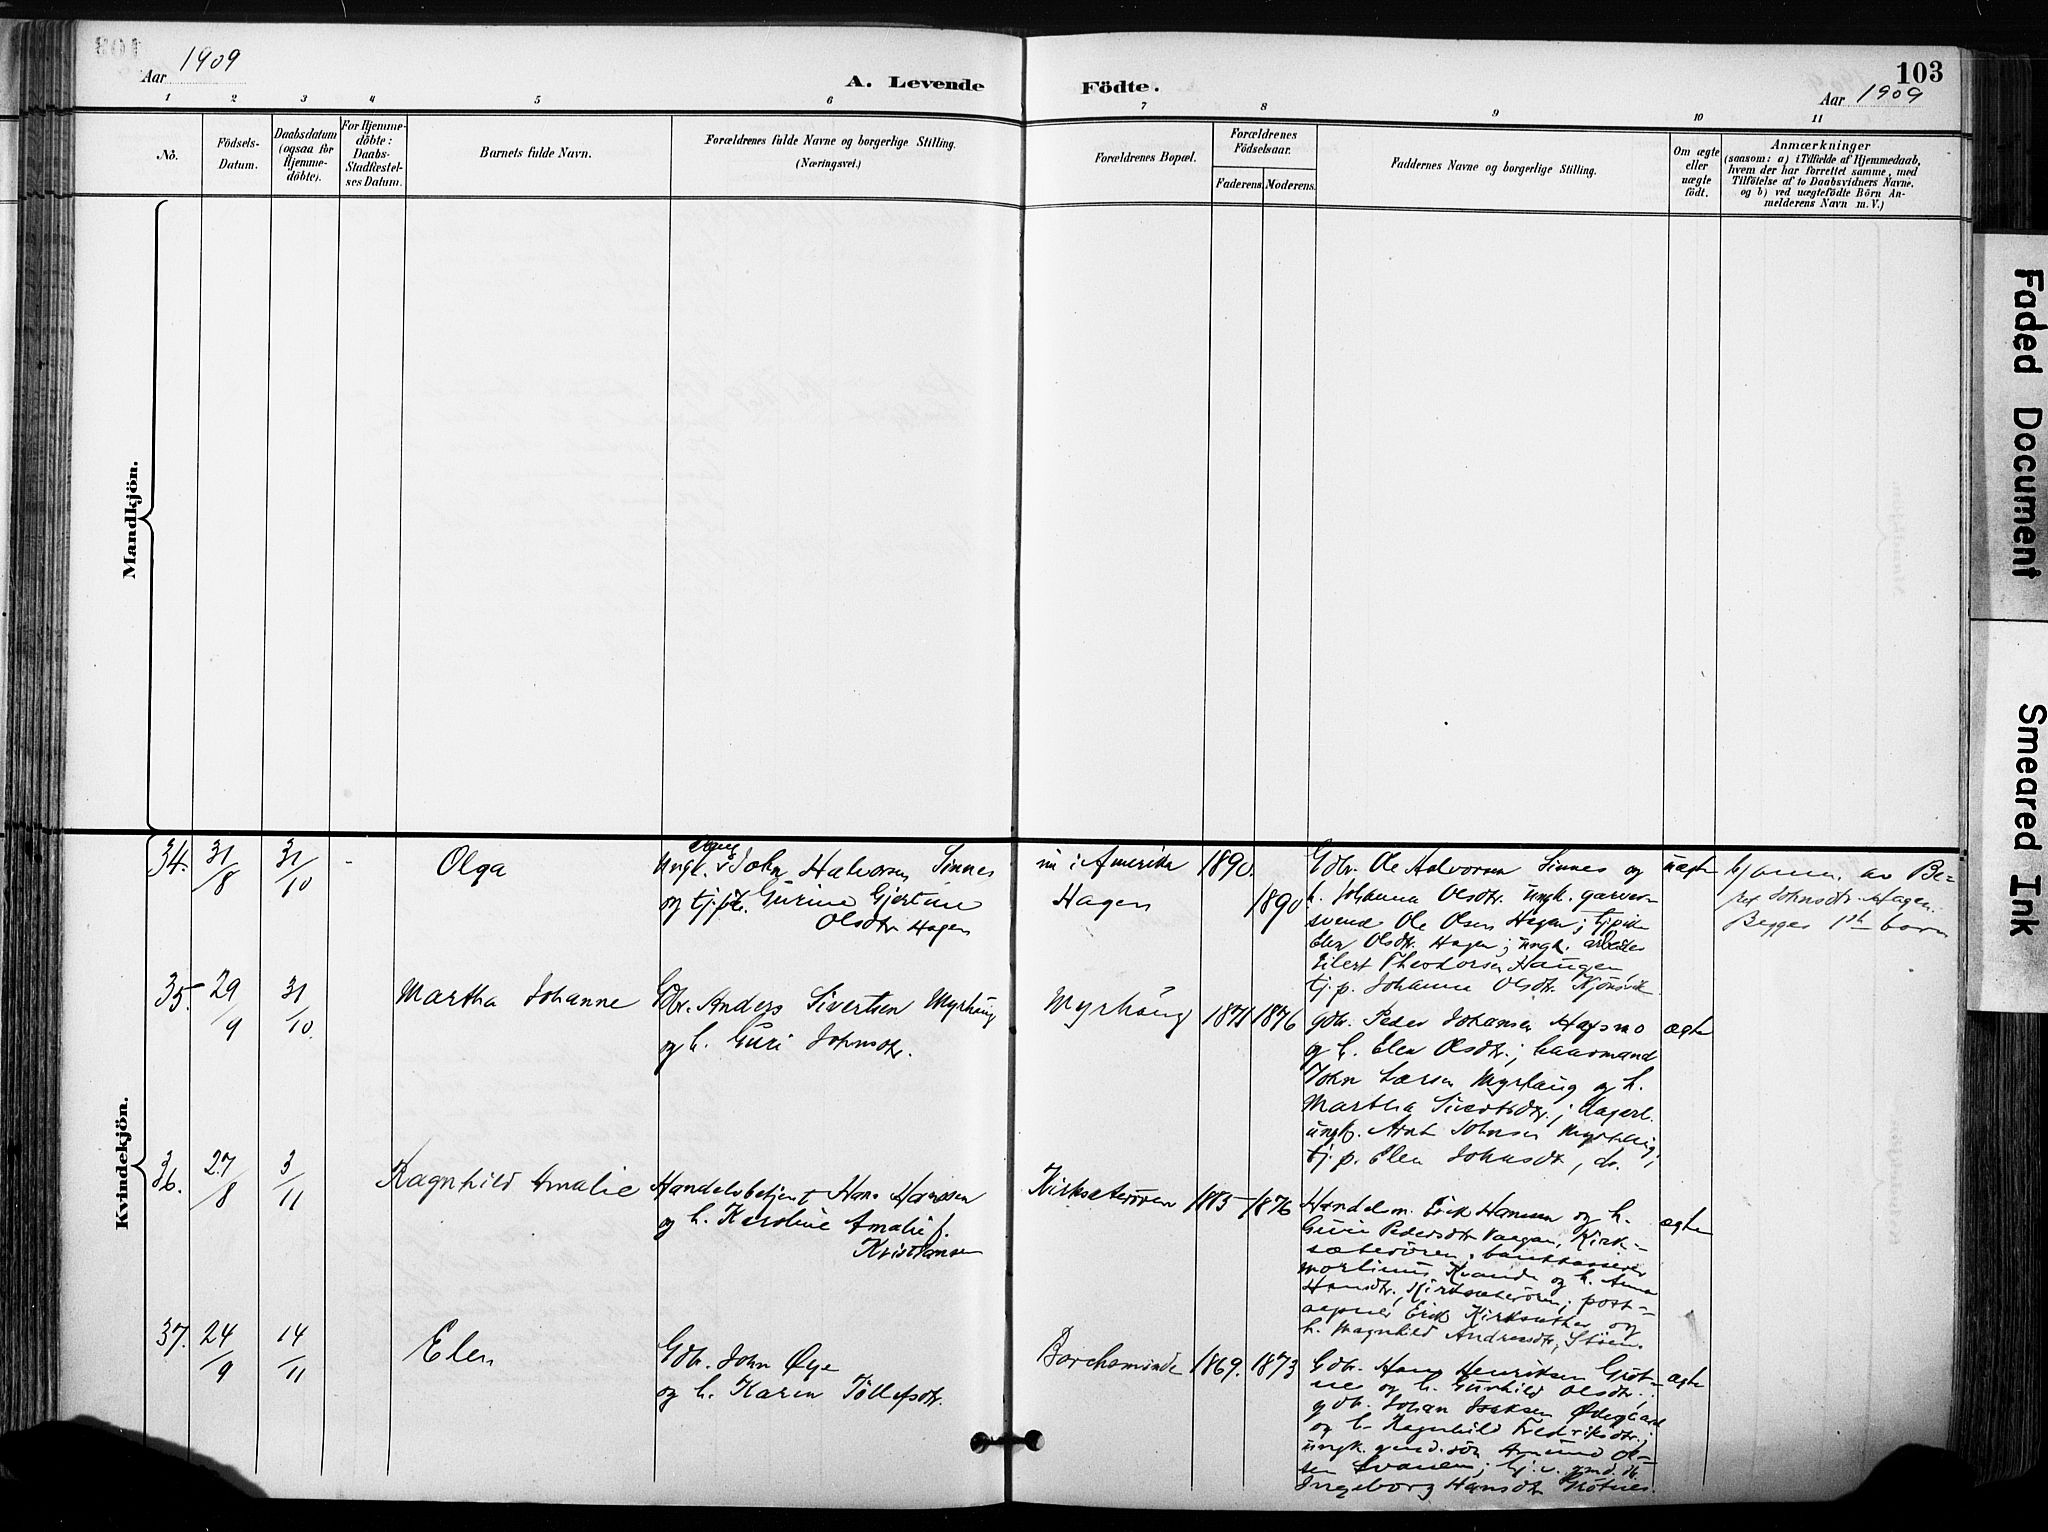 Aar 1909
A. Levende Födte.
103
Aar 1909
1 2 3 4 5 6 7 8 9 10 11
No.
Födsels-
Datum.
Daabsdatum
(ogsaa for
Hjemme-
döbte).
For Hjemme-
döbte:
Daabs-
Stadfæstel-
ses Datum.
Barnets fulde Navn.
Forældrenes fulde Navne og borgerlige Stilling.
(Næringsvei.)
Forældrenes Bopæl.
Forældrenes
Födselsaar.
Faderens. Moderens.
Faddernes Navne og borgerlige Stilling.
Om ægte
eller
uægte
födt.
Anmærkninger
(saasom: a) i Tilfælde af Hjemmedaab,
hvem der har forrettet samme, med
Tilföielse af to Daabsvidners Navne.
og b) ved uægtefödte Börn An-
melderens Navn m. V.)
Mandkjön.
Kvindekjön.
34. 31/8 31/10 - Olga
Ungk. John Halvorsen Sinnes
og tj.p. Gurine Gjertine
Olsdtr. Hagen
nu i Amerika
Hagen
1890.
1890
Gdbr. Ole Halvorsen Sinnes og
h. Johanna Olsdtr. ungk. garver-
svend Ole Olsen Hagen; tjpike
Elen Olsdtr. Hagen; ungk. arbeider
Eilert Theodorsen Haugen
tj.p. Johanna Olsdtr. Kjönsvik
uægte
b/ anm. av Be-
ret Johnsdtr. Hagen.
Begges 1ste barn
35. 29/9 31/10. Martha Johanne
Gbr. Anders Sivertsen Myrhaug
og h. Guri Johnsdtr.
Myrhaug
1871 1876
Gdbr. Peder Johansen
og h. Elen Olsdtr.; kaarmand
John Larsen Myrhaug og h.
Martha Sivertsdtr.;
ungk. Arnt Johnsen Myrhaug;
tj.p. Elen Johnsdtr, do.
ægte
36. 27/8 3/11 Ragnhild Amalie
Handelsbetjent Hans Hanssen
og h. Karoline Amalie f.
Kristiansen
Kirksæterören
1883 1876
Handelsm. Erik Hansen og h.
Guri Pedersdtr Vaagan, Kirk-
sæterören; bankkasserer
Martinus Kvande og h. Anna
Hansdtr. Kirksæterören; post-
aapner Erik Kirksæther og
h. Magnhild Andreasdtr, Stöen.
ægte
37. 24/9 14/11 Elen
Gdbr. John Øye
og h. Karen Tollefsdtr.
Borchsminde
1869. 1873
Gdbr. Hans Henriksen Gröt-
og h. Gunhild Olsdtr.;
gdbr. Johan Isaksen Ødegaard
og h. Ragnhild Fredriksdtr.;
ungk. gmd.sön Amund Ol-
sen Svanem;
Ingeborg Hansdtr
ægte
Faded Document
Smeared Ink